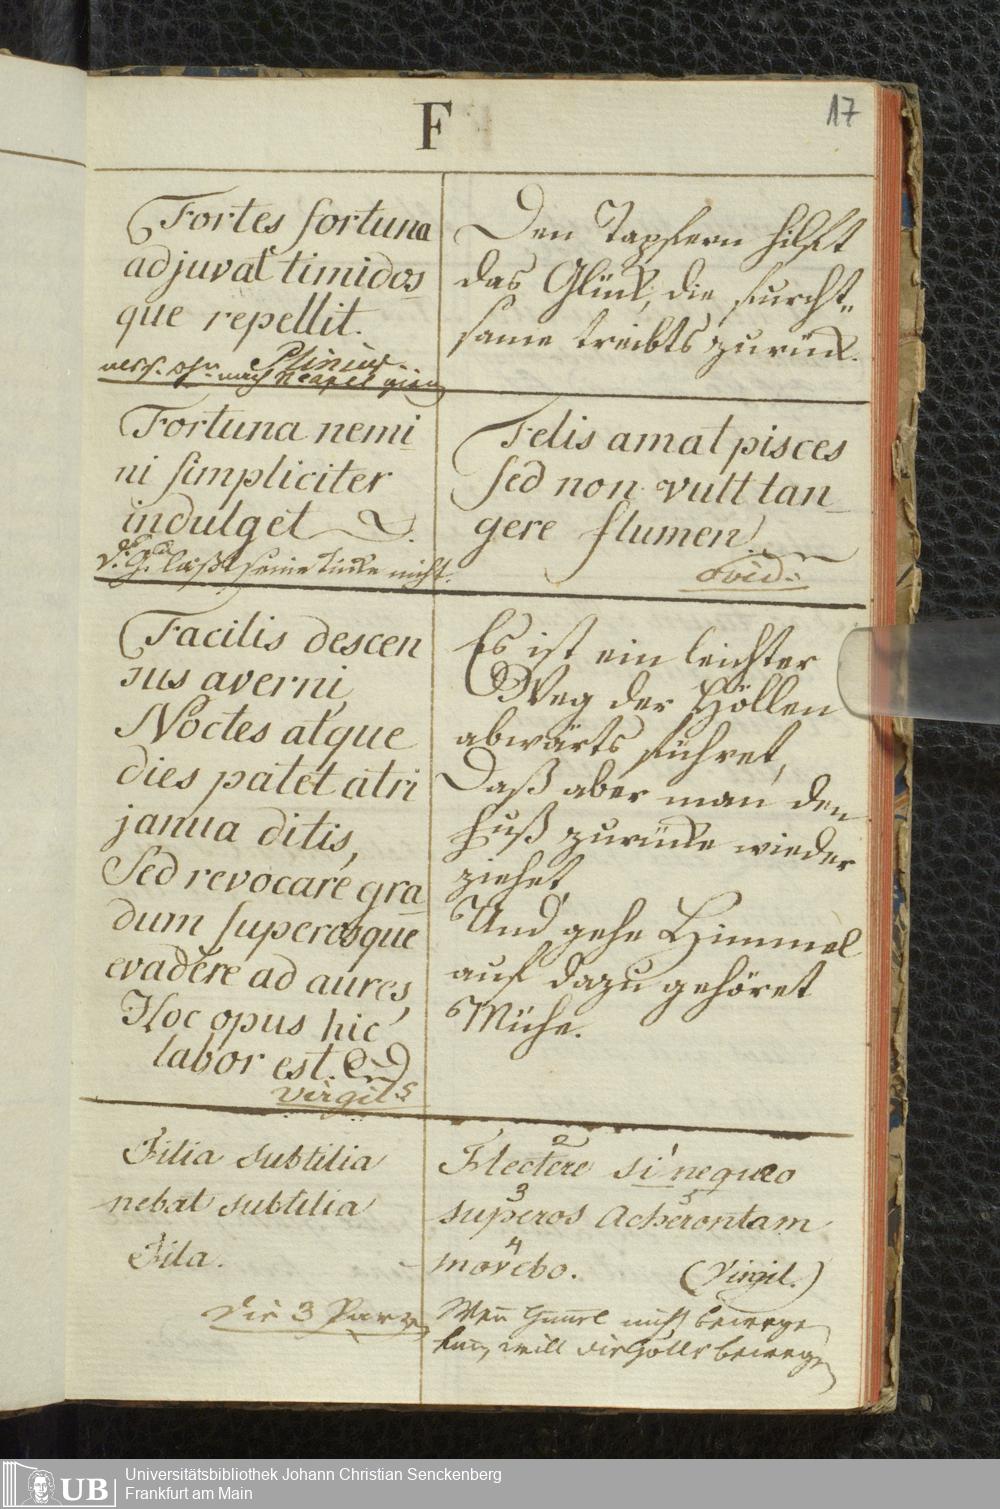 F
17
Fortes fortuna
adjuvat timidos
que repellit.
Plinius
nach Neapel
Den Tapfern hilft
das Glück, die furcht„
same treibts zurück.
Fortuna nemi
ni simpliciter
indulget
d. G. läßt seine Tücke nicht.
Felis amat pisces
sed non vult tan
gere flumen!
Ovid:
Facilis descen
sus averni,
Noctes atque
dies patet atri
janua ditis,
Sed revocare gra
dum superosque
evadere ad aures,
Hoc opus hic
labor est.
Virgil
Es ist ein leichter
Weg der Höllen
abwärts führet,
Daß aber man den
Fuß zurücke wieder
ziehet,
Und gehe Himmel
auf dazu gehöret
Mühe.
Filia subtilia
nebat subtilia
Fila.
Die 3 Parz
2 1
Flectere si nequeo
3 5
superos Acherontam
4
movebo. (Virgil.)
Wen nicht bewege
will die Hölle bewege
UB
Universitätsbibliothek Johann Christian Senckenberg
Frankfurt am Main